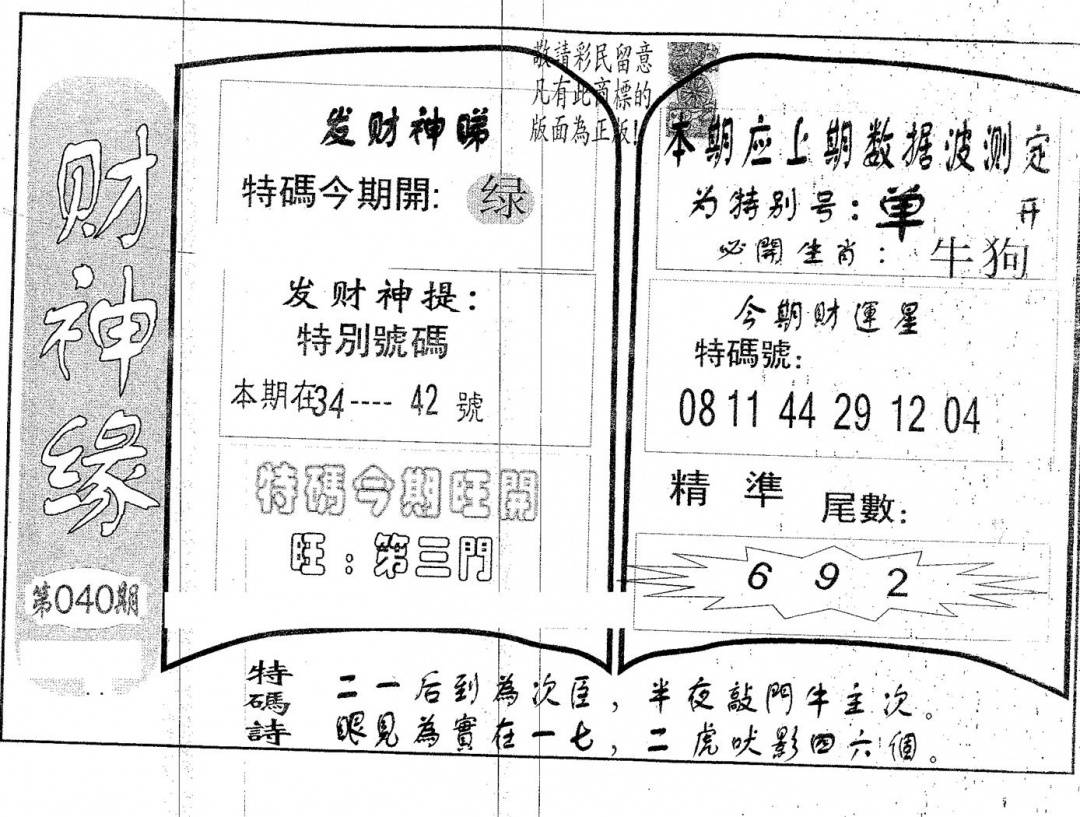 财神缘
第040期
敬請彩民留意
凡有此商標的
版面為正版!
发财神睇
特碼今期開: 绿
发财神提:
特別號碼
本期在34---- 42 號
特碼今期旺開
旺:第三門
本期应上期数据波测定
为特别号:单 开
必開生肖: 牛狗
今期财運星
特碼號:
08 11 44 29 12 04
精準 尾數:
6 9 2
特碼詩
二一后到為次臣,半夜敲門牛主次。
眼見為實在一七,二虎吠影四六個。